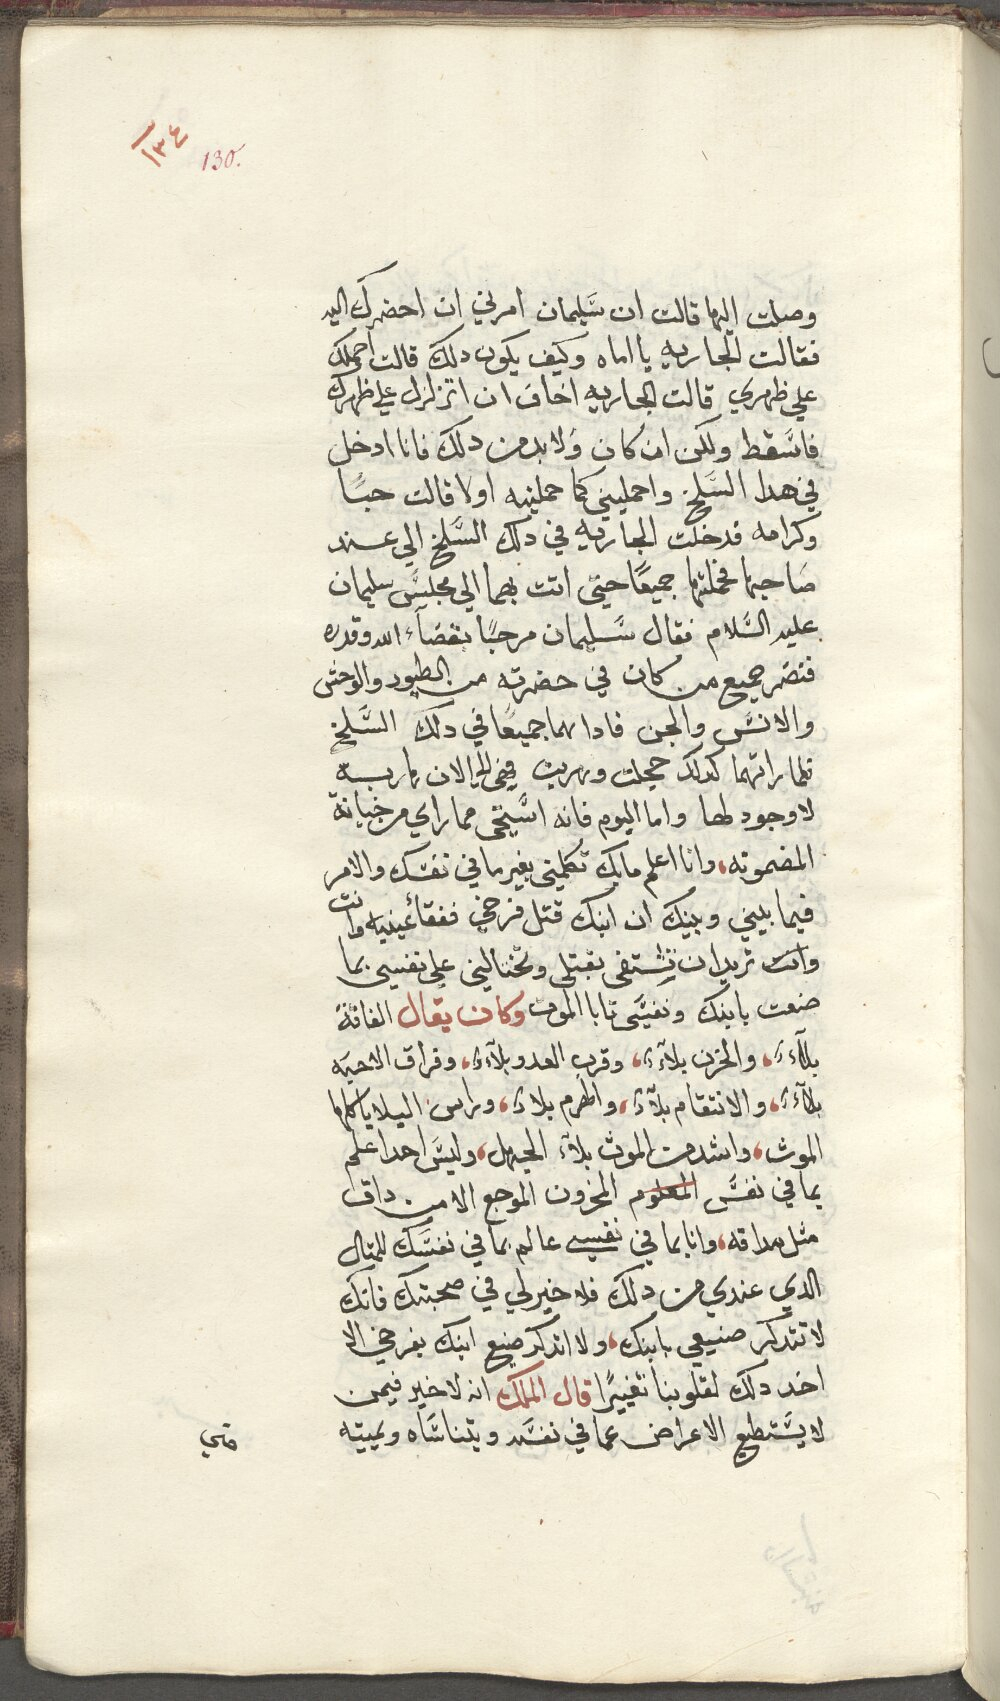 ١٣٤
130.
وصلت اليها قالت ان سليمان امرني ان احضرك اليه
فقالت الجاريه يا اماه وكيف يكون دلك قالت احملك
علي ظهري قالت الجاريه اخاف ان اتزلزل علي ظهرك
فاسقط ولكن ان كان ولا بد من دلك فانا ادخل
في هدا السلخ واحمليني كما حملتيه اولا قالت حبًا
وكرامه فدخلت الجاريه في دلك السلخ الي عند
صاحبها فحملتهما جميعًا حتي اتت بهما الي مجلس سليمان
عليه السلام فقال سليمان مرحبًا بقضآء الله وقدره
فنضر جميع من كان في حضرته من الطيور والوحش
والانس والجن فادا هما جميعًا في دلك السلخ
فلما راتهما كدلك خجلت وهربت فهي الي الان هاربه
لا وجود لها واما اليوم فانه استحى مما راي من خيانة
المضمونه، وانا اعلم مابك تكلمني بغير ما في نفسك والامر
فيما بيني وبينك ان ابنك قتل فرخي ففقأ عينيه وانت
وانت تريد ان تشتفى بقتلي وتختالني علي نفسي بما
صنعت بابنك ونفسي تابا الموت وكان يقال الفاقة
بلآء، والحزن بلآء، وقرب العدو بلآء، وفراق الاحبه
بلآء، والانتقام بلآء، والهرم بلاء، وراس البلايا كلها
الموت، واشد من الموت بلآء الجهل، وليس احدا علم
بما في نفس المعلوم المحزون الموجع الا من داق
مثل مداقه، وانا بما في نفسي عالم بما في نفسك للمتال
الدي عندي من دلك فلا خير لي في صحبتك فانك
لا تتدكر صنيعي بابنك، ولا اتدكر صنيع ابنك بفرخي الا
احد دلك لقلوبنا تغييرًا قال الملك انه لا خير فيمن
لا يستطيع الاعراض عما في نفسه ويتناساه ويميته
حتي